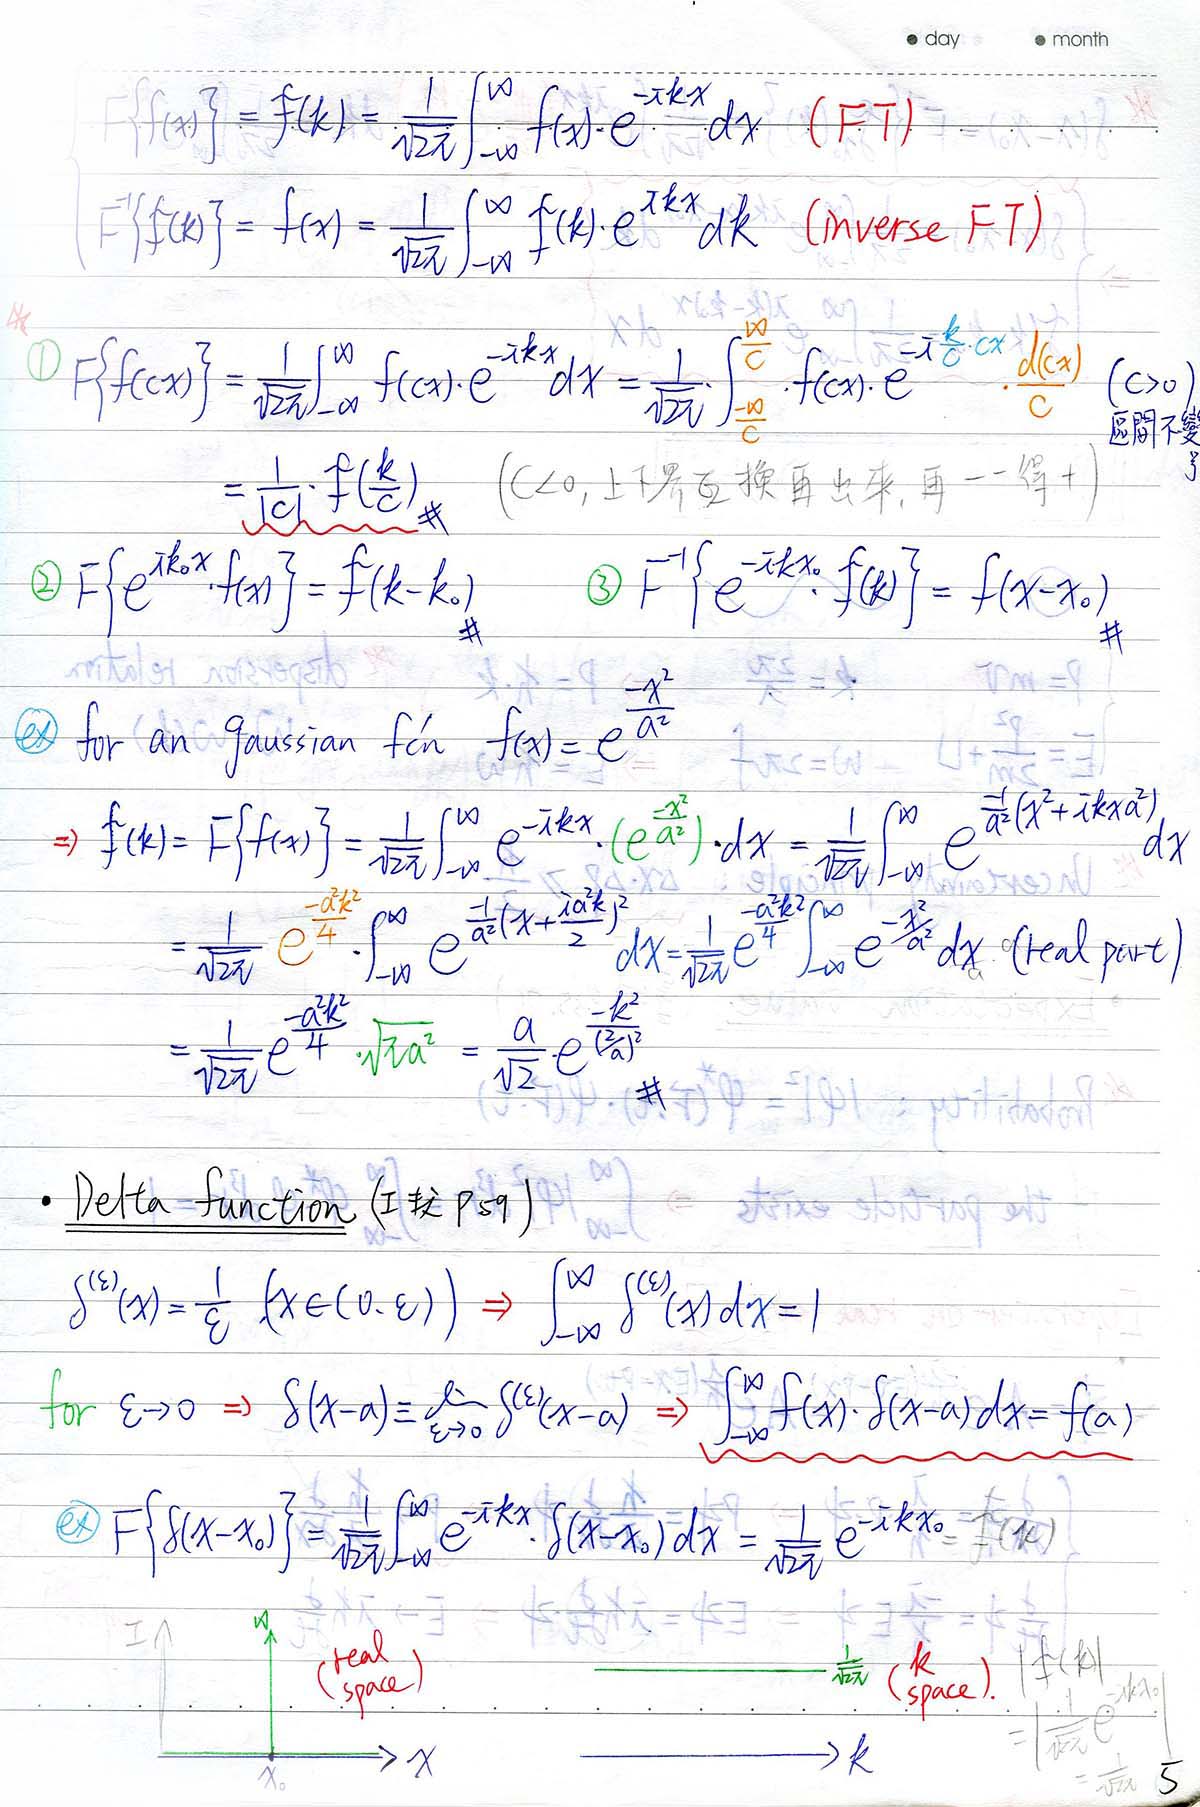 • day • month
F{f(x)} = f̃(k) = 1/√2π ∫_{-∞}^{∞} f(x)·e^{-ikx} dx (FT)
F⁻¹{f̃(k)} = f(x) = 1/√2π ∫_{-∞}^{∞} f̃(k)·e^{ikx} dk (inverse FT)
① F{f(cx)} = 1/√2π ∫_{-∞}^{∞} f(cx)·e^{-ikx} dx = 1/√2π · ∫_{-∞/c}^{∞/c} · f(cx)·e^{-i k/c · cx} · d(cx)/c (c>0)
區間不變
= 1/|c| · f̃(k/c) # (c<0, 上下界互換再出來, 再一一得+)
② F{e^{ik₀x}·f(x)} = f̃(k-k₀) # ③ F⁻¹{e^{-ikx₀}·f̃(k)} = f(x-x₀) #
ex for an gaussian fcn f(x) = e^{-x²/a²}
⇒ f̃(k) = F{f(x)} = 1/√2π ∫_{-∞}^{∞} e^{-ikx}·(e^{-x²/a²})·dx = 1/√2π ∫_{-∞}^{∞} e^{-1/a²(x²+ikxa²)} dx
= 1/√2π e^{-a²k²/4} · ∫_{-∞}^{∞} e^{-1/a²(x+ia²k/2)²} dx = 1/√2π e^{-a²k²/4} ∫_{-∞}^{∞} e^{-x²/a²} dx (real part)
= 1/√2π e^{-a²k²/4} · √πa² = a/√2 · e^{-k²/(2/a)²} #
• Delta function (工數 P59)
δ^{(ε)}(x) = 1/ε (x∈(0.ε)) ⇒ ∫_{-∞}^{∞} δ^{(ε)}(x) dx = 1
for ε→0 ⇒ δ(x-a) ≡ lim_{ε→0} δ^{(ε)}(x-a) ⇒ ∫_{-∞}^{∞} f(x)·δ(x-a) dx = f(a)
ex F{δ(x-x₀)} = 1/√2π ∫_{-∞}^{∞} e^{-ikx}·δ(x-x₀) dx = 1/√2π e^{-ikx₀} = f̃(k)
I ∞ (real space) 1/√2π (k space). |f̃(k)|
= |1/√2π e^{-ikx₀}|
= 1/√2π
x₀ x k
5